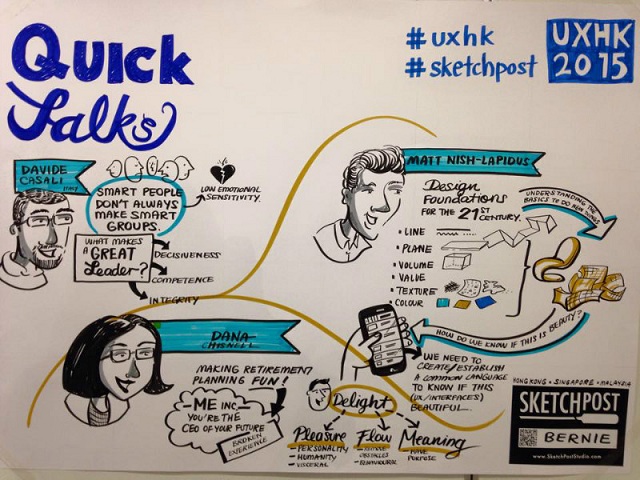 QUICK
Talks
#uxhk
#sketchpost
UXHK
2015
DAVIDE
CASALI
SMART PEOPLE
DON'T ALWAYS
MAKE SMART
GROUPS.
LOW EMOTIONAL
SENSITIVITY.
WHAT MAKES
A GREAT
Leader?
DECISIVENESS
COMPETENCE
INTEGRITY
MATT NISH-LAPIDUS
Design
Foundations
FOR THE 21ST
CENTURY.
UNDERSTANDING THE
BASICS TO DO NEW THINGS
• LINE
• PLANE
• VOLUME
• VALUE
• TEXTURE
• COLOUR
HOW DO WE KNOW IF THIS IS BEAUTY?
WE NEED TO
CREATE/ESTABLISH
A COMMON LANGUAGE
TO KNOW IF THIS
(UX/INTERFACES)
BEAUTIFUL.
DANA
CHISNELL
MAKING RETIREMENT
PLANNING FUN!
ME INC
YOU'RE THE
CEO OF YOUR FUTURE
BROKEN
EXPERIENCE
Delight
Pleasure
- PERSONALITY
- HUMANITY
- VISCERAL
Flow
OBSTACLES
- BEHAVIOURAL
Meaning
- HAVE
PURPOSE
HONG KONG • SINGAPORE • MALAYSIA
SKETCHPOST
BERNIE
www.SketchPostStudio.com